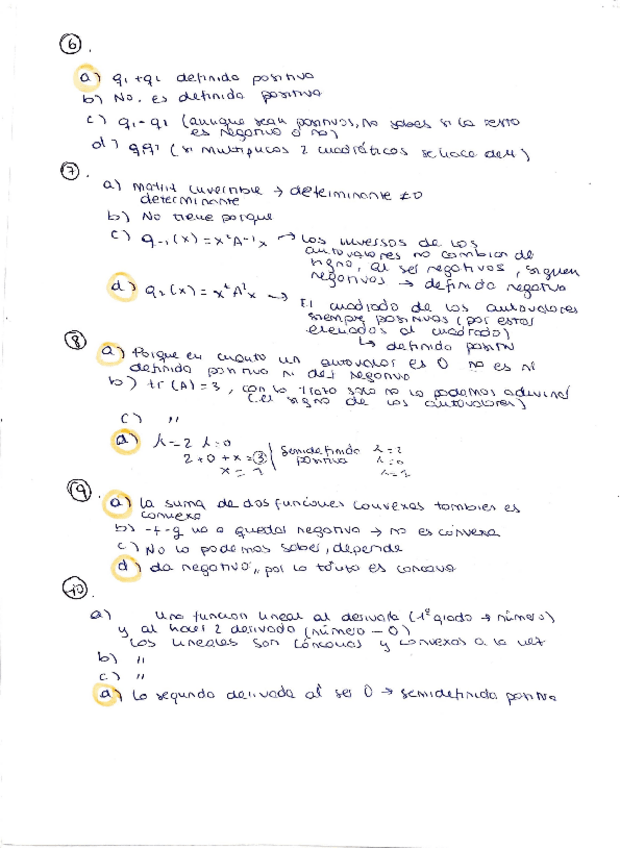 6.
a) q1 + q2 definida positiva
b) No. es definida positiva
c) q1 - q2 (aunque sean positivos, no sabes si la resta
es negativa o no)
d) q1q2 (si multiplicas 2 cuadráticas se hace de 4)
7.
a) matriz invertible → determinante ≠0
determinante
b) No tiene porque
c) q-1(x) = xᵗA⁻¹x → los inversos de los
autovalores no cambian de
signo, al ser negativos, siguen
negativos → definida negativa
d) q2(x) = xᵗA²x → El cuadrado de los autovalores
siempre positivos (por estar
elevados al cuadrado)
↳ definida positiv
8
a) Porque en cuanto un autovalor es 0 no es ni
definida positiva ni def negativa
b) tr(A) = 3, con la traza solo no lo podemos adivinar
(el signo de los autovalores)
c) "
d) λ=2 λ=0
2+0+x=3 Semidefinida λ=2
x=1 positiva λ=0
λ=1
9.
a) La suma de dos funciones convexas tambien es
convexa
b) -f-g va a quedar negativa → no es convexa
c) No lo podemos saber, depende
d) da negativo, por lo tanto es concava
10.
a) Una funcion lineal al derivarla (1º grado → número)
y al hacer 2 derivada (número - 0)
Las lineales son cóncavas y convexas a la vez
b) "
c) "
d) La segunda derivada al ser 0 → semidefinida positiva